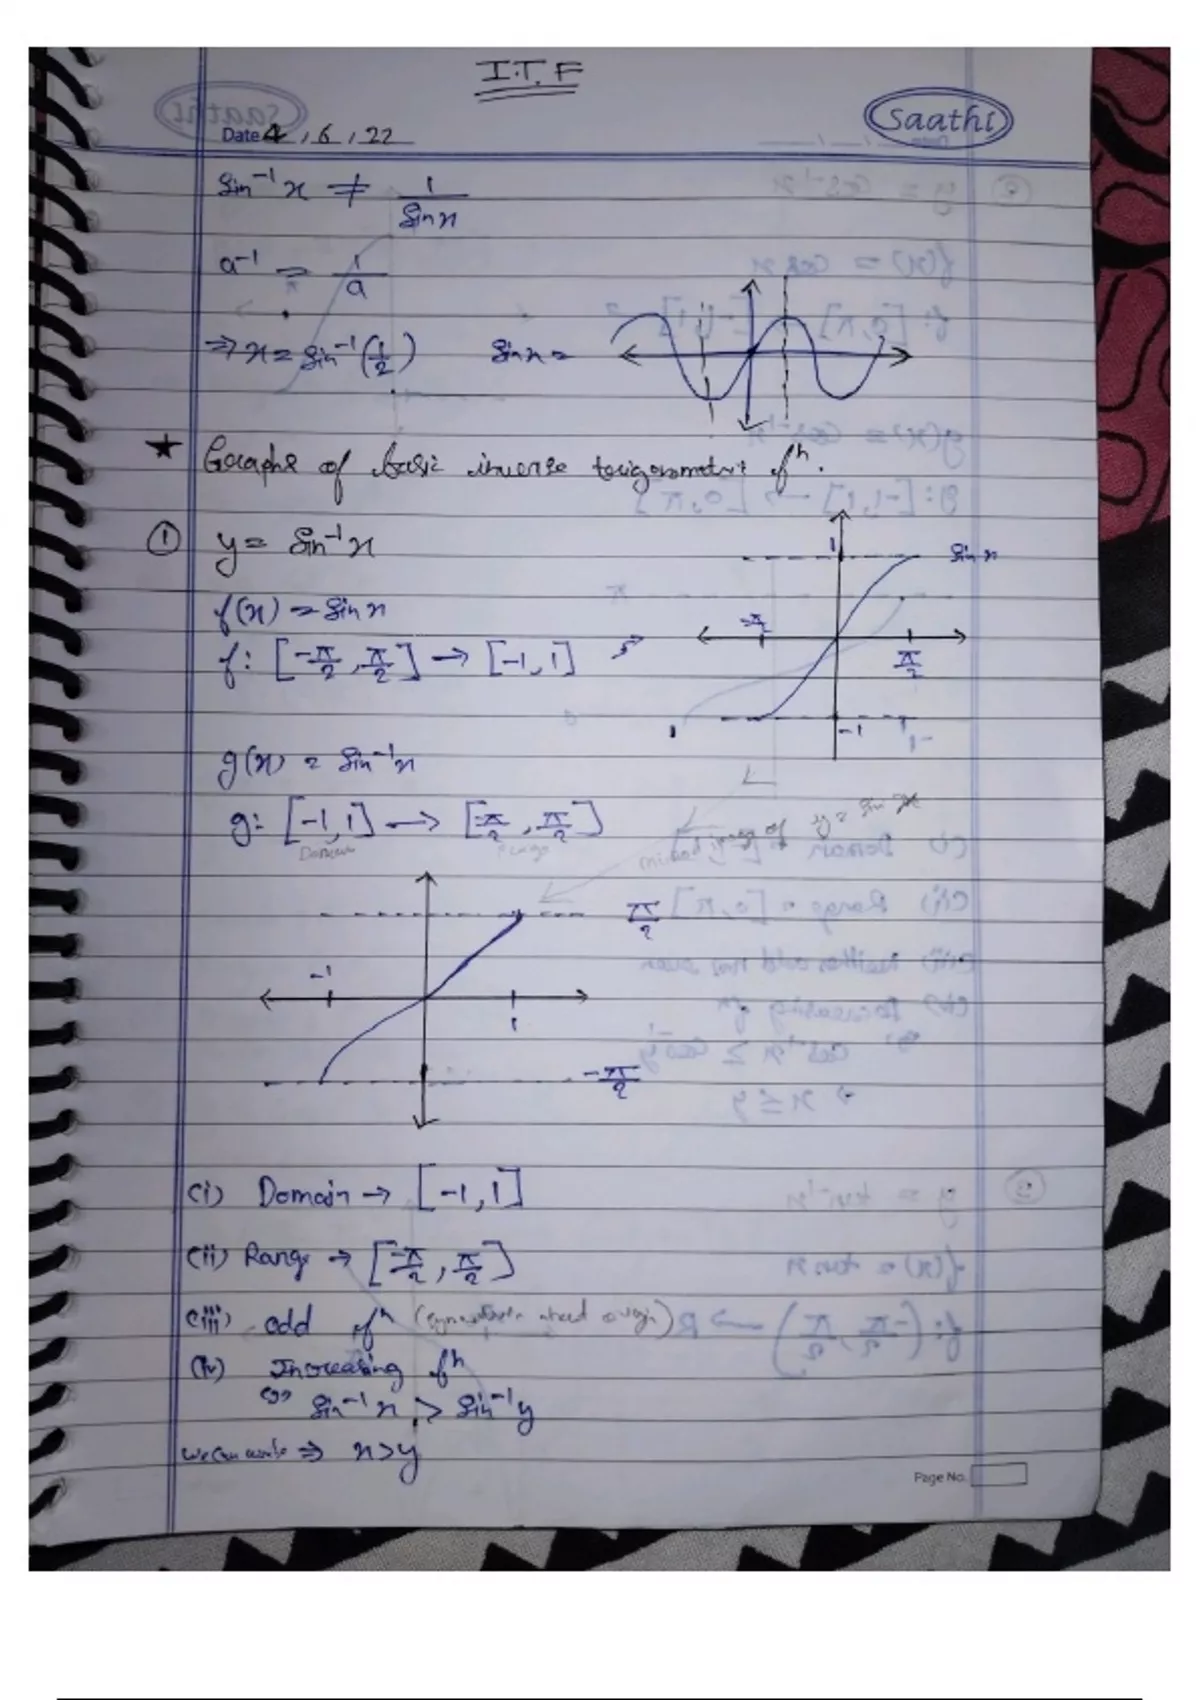 I.T.F
Saathi
Date 4 / 6 / 22
Sin⁻¹x ≠ 1/Sinx
a⁻¹ = 1/a
⇒ x = Sin⁻¹(1/2) Sinx =
★ Graphs of basic inverse trigonometric fⁿ.
① y = Sin⁻¹x
1 Sinx
f(x) = Sinx
-π/2 π/2
f: [-π/2, π/2] → [-1, 1]
-1
g(x) = Sin⁻¹x
g: [-1, 1] → [-π/2, π/2]
Domain Range
π/2
-1 1
-π/2
(i) Domain → [-1, 1]
(ii) Range → [-π/2, π/2]
(iii) odd fⁿ (symmetric about origin)
(iv) Increasing fⁿ
Sin⁻¹x > Sin⁻¹y
we can write ⇒ x>y
Page No.